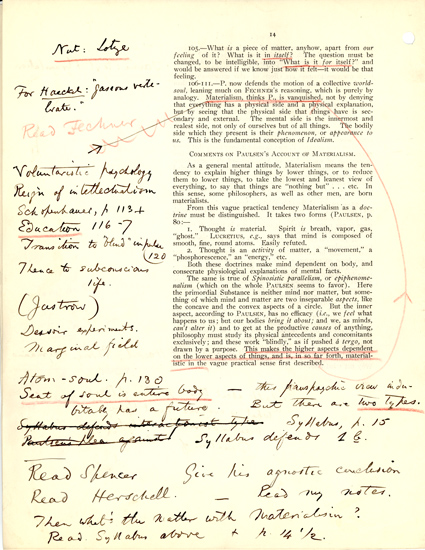 14
Nat: Lotze
For Haeckel: "gaseous verte-
brate."
Read Fechner
Voluntaristic psychology
Reign of intellectualism
Schopenhauer, p 113+
Education 116-7
Transition to "blind" impulse
120
Thence to subconscious
life.
(Jastrow)
Dessoir experiments.
Marginal field
105.—What is a piece of matter, anyhow, apart from our
feeling of it? What is it in itself? The question must be
changed, to be intelligible, into "What is it for itself?" and
would be answered if we knew just how it felt—it would be that
feeling.
106-111.—P. now defends the notion of a collective world-
soul, leaning much on FECHNER'S reasoning, which is purely by
analogy. Materialism, thinks P., is vanquished, not by denying
that everything has a physical side and a physical explanation,
but by seeing that the physical side that things have is sec-
ondary and external. The mental side is the innermost and
realest side, not only of ourselves but of all things. The bodily
side which they present is their phenomenon, or appearance to
us. This is the fundamental conception of Idealism.
COMMENTS ON PAULSEN'S ACCOUNT OF MATERIALISM.
As a general mental attitude, Materialism means the ten-
dency to explain higher things by lower things, or to reduce
them to lower things, to take the lowest and leanest view of
everything, to say that things are "nothing but" . . . etc. In
this sense, some philosophers, as well as other men, are born
materialists.
From this vague practical tendency Materialism as a doc-
trine must be distinguished. It takes two forms (PAULSEN, p.
80:—
1. Thought is material. Spirit is breath, vapor, gas,
"ghost." LUCRETIUS, e.g., says that mind is composed of
smooth, fine, round atoms. Easily refuted.
2. Thought is an activity of matter, a "movement," a
"phosphorescence," an "energy," etc.
Both these doctrines make mind dependent on body, and
consecrate physical explanations of mental facts.
The same is true of Spinosistic parallelism, or epiphenome-
nalism (which on the whole PAULSEN seems to favor). Here
the primordial Substance is neither mind nor matter, but some-
thing of which mind and matter are two inseparable aspects, like
the concave and the convex aspects of a circle. But the inner
aspect, according to PAULSEN, has no efficacy (i.e., we feel what
happens to us; but our bodies bring it about; and we, as minds,
can't alter it) and to get at the productive causes of anything,
philosophy must study its physical antecedents and concomitants
exclusively; and these work "blindly," as if pushed à tergo, not
drawn by a purpose. This makes the higher aspects dependent
on the lower aspects of things, and is, in so far forth, material-
istic in the vague practical sense first described.
Atom-soul. p. 130
Seat of soul is entire body — this panpsychic view indu-
bitably has a future. But there are two types.
Syllabus defends interactionist type. Syllabus, p. 15
Paulsen's plea against Syllabus defends 1 b.
Read Spencer Give his agnostic conclusion
Read Herschell. — Read my notes.
Then what's the matter with Materialism?
Read Syllabus above + p. 14 1/2.